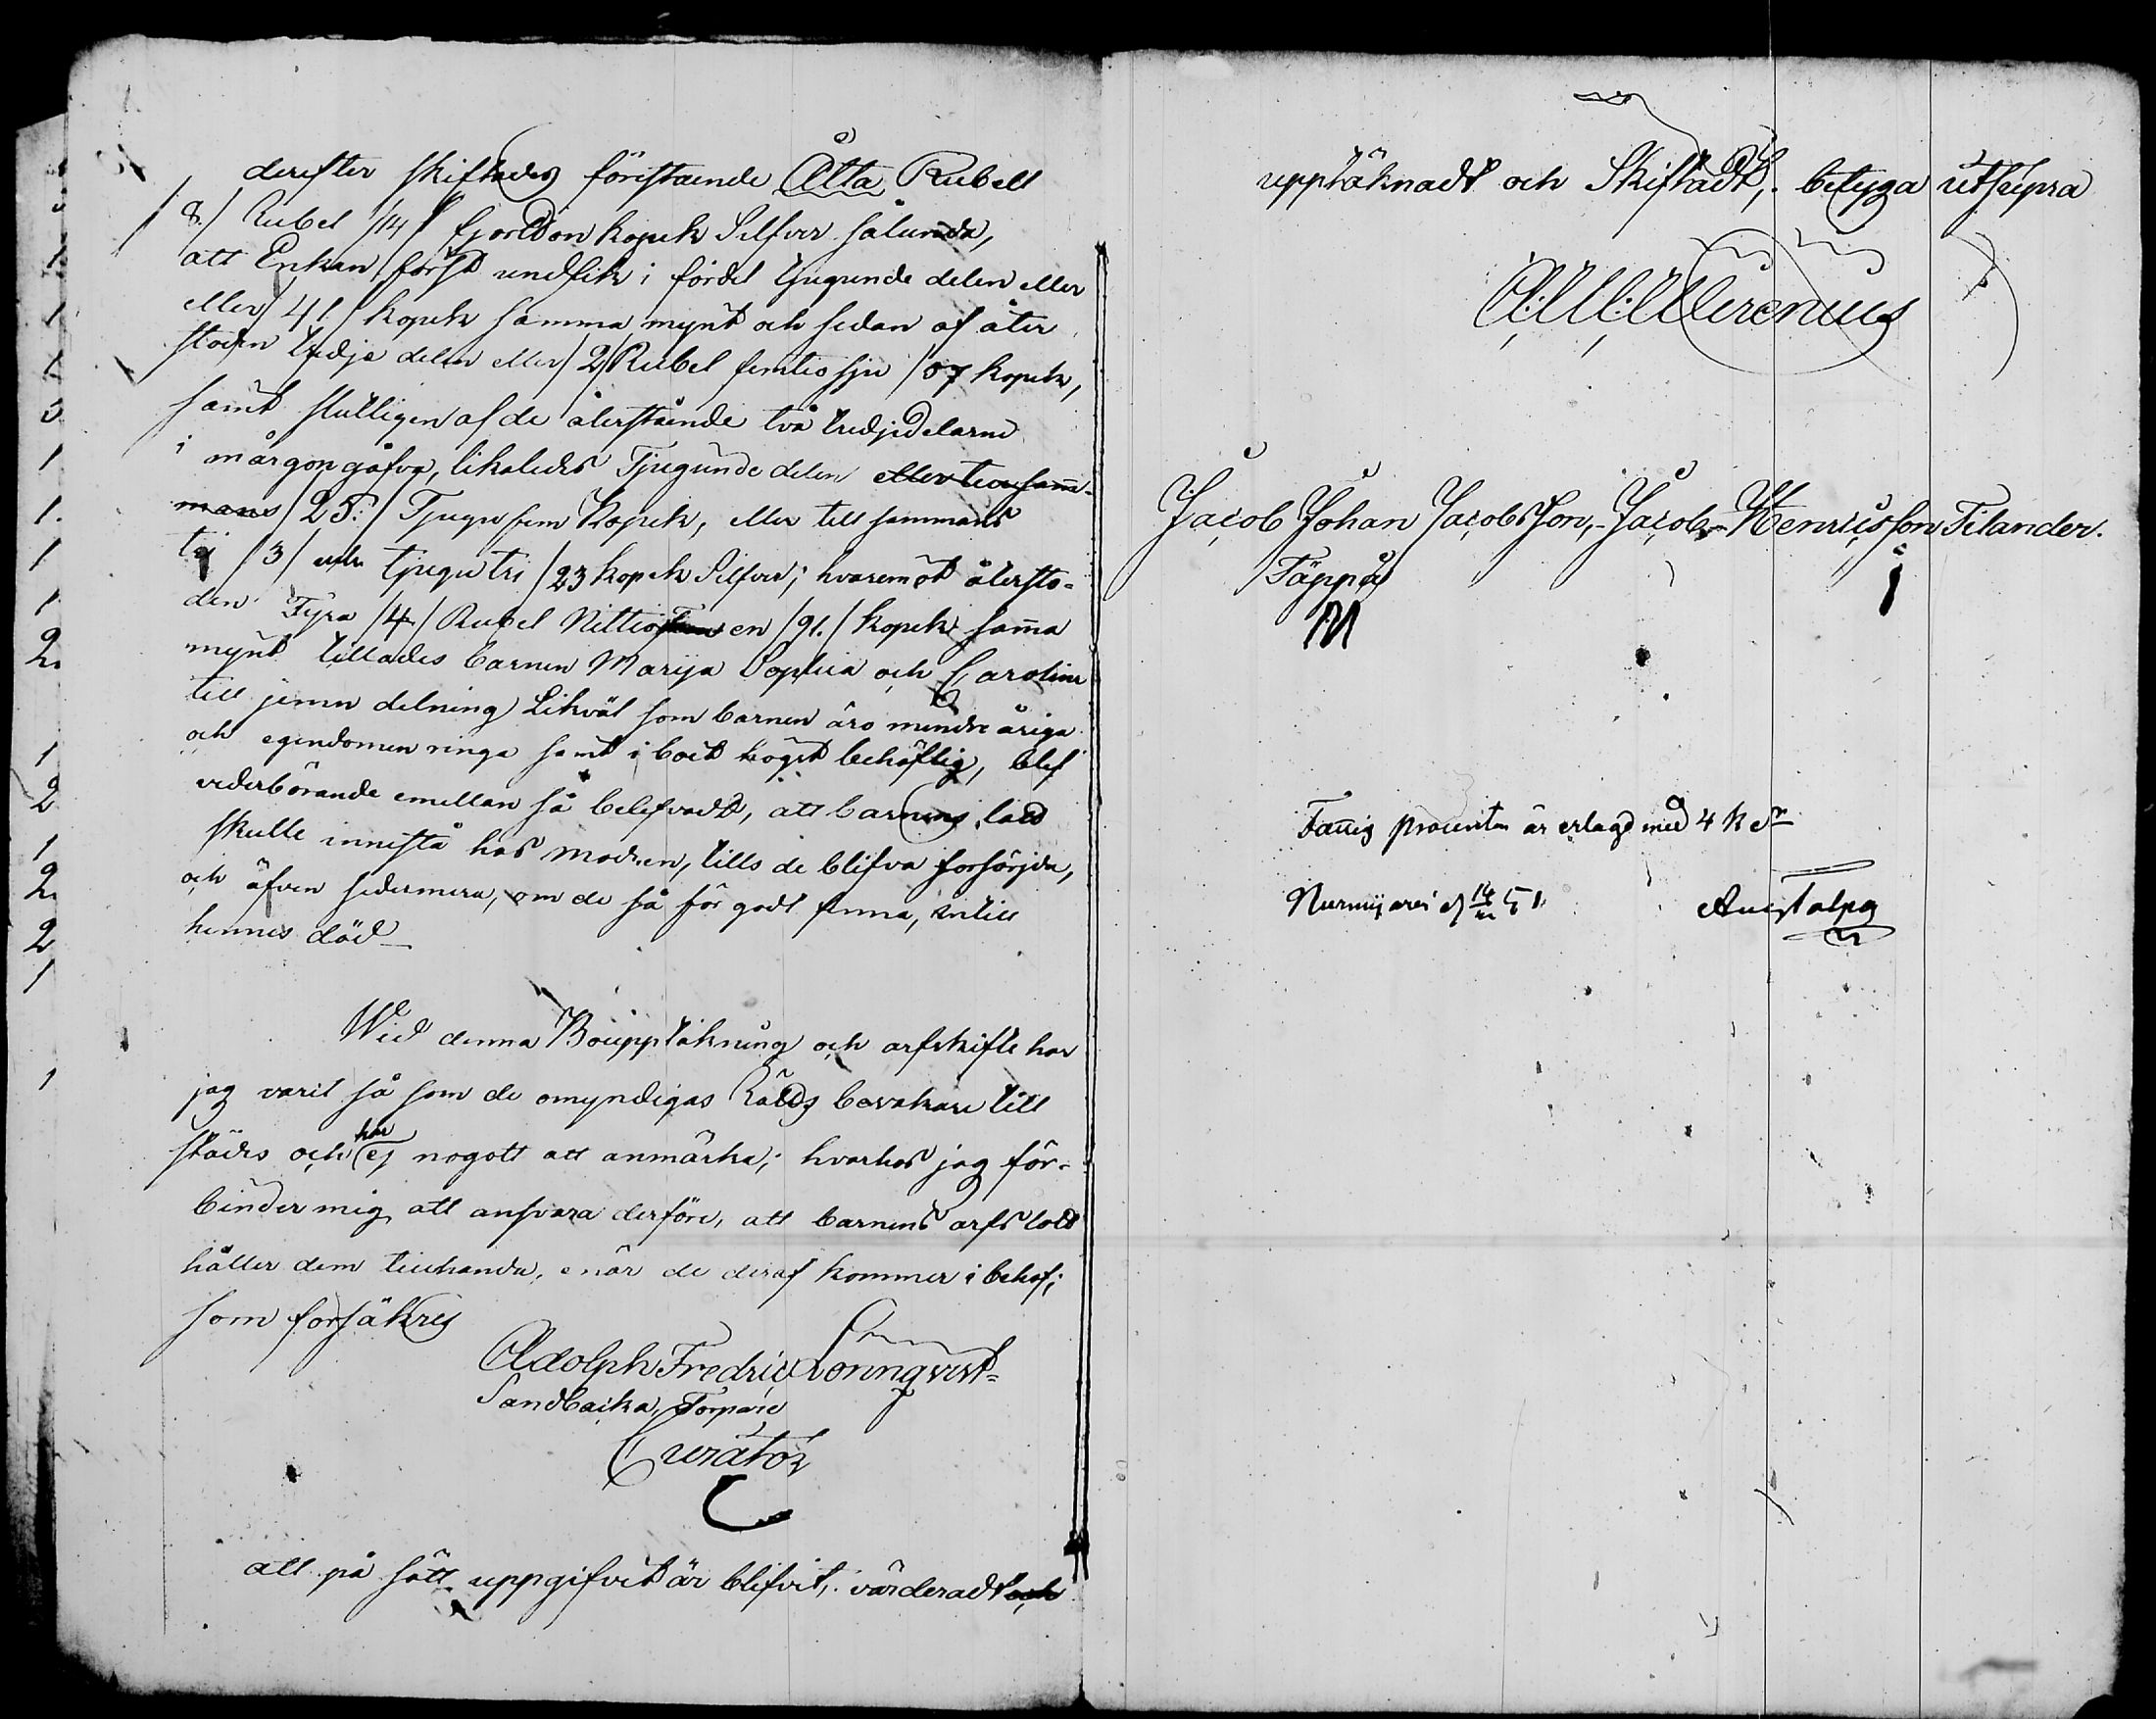 derefter skiftades förestående Åtta Rubell
8/ Rubel /14/ fjorton kopek Silfver sålunda,
att Enkan först undfik i fördel tjugunde delen eller
eller /41/ kopek samma mynt och sedan af åter
stoden tredje delen eller /2/ Rubel femtio sju /57 kopek,
samt slutligen af de återstående två tredjedelarne
i mårgongåfva, likaledes Tjugunde delen eller tillsamm-
mans /25:/ Tjugu fem Kopek, eller till sammans
tri /3/ rub. tjugu tri /23 kopek Silfver; hvaremot återsto-
den Fyra /4/ Rubel Nittio en /91./ kopek samma
mynt tillades barnen Marija Sophia och Carolina
till jemn delning Likväl som barnen äro mindre åriga
och egendomen ringa samt i boet högst behöflig, blef
vederbörande emellan så belefvadt, att barnens lott
skulle innestå hos modren, tills de blifva försörjda,
och äfven sedermera, om de så för godt finna, intill
hennes död
Wid denna Boupptäkning och arfskifte har
jag varit så som de omyndigas Rätts bevakare till
städes och har ej nogott att anmärka; hvarhos jag för-
binder mig att ansvara derföre, att barnens arfs lott
håller dem tillhanda, enär de deraf kommer i behof;
som försäkres
Adolph Fredric Lönnqvist
Sandbacka, Torpare
Curator
att på sätt uppgifvit är blifvit, värderadt och
upptäknadt och Skiftadt, betyga utsupra
Jacob Johan Jacobsson,- Jacob Henricsson Tilander.
Täppå
M
Fattig procenten är erlagd med 4 k Sr
Nurmijärvi d 14 51